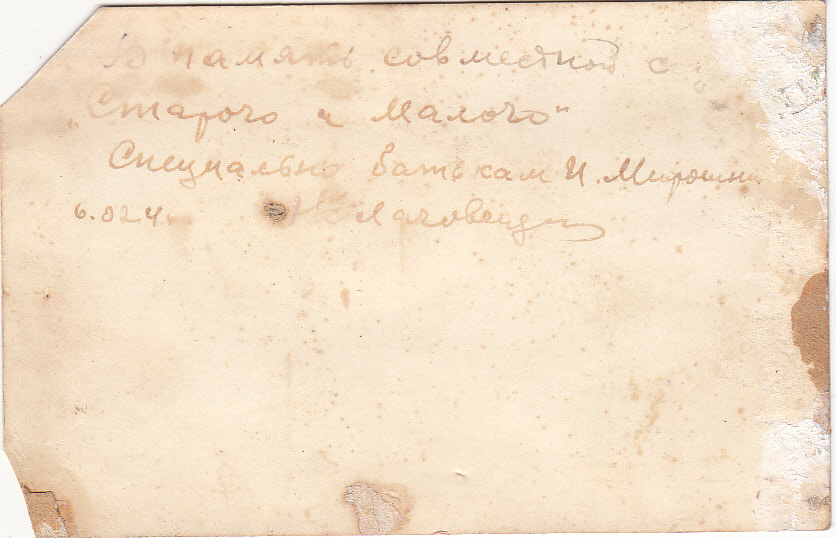 В память совместной
„Старого и Малого“
Специально батькам И. Мирошни
6.